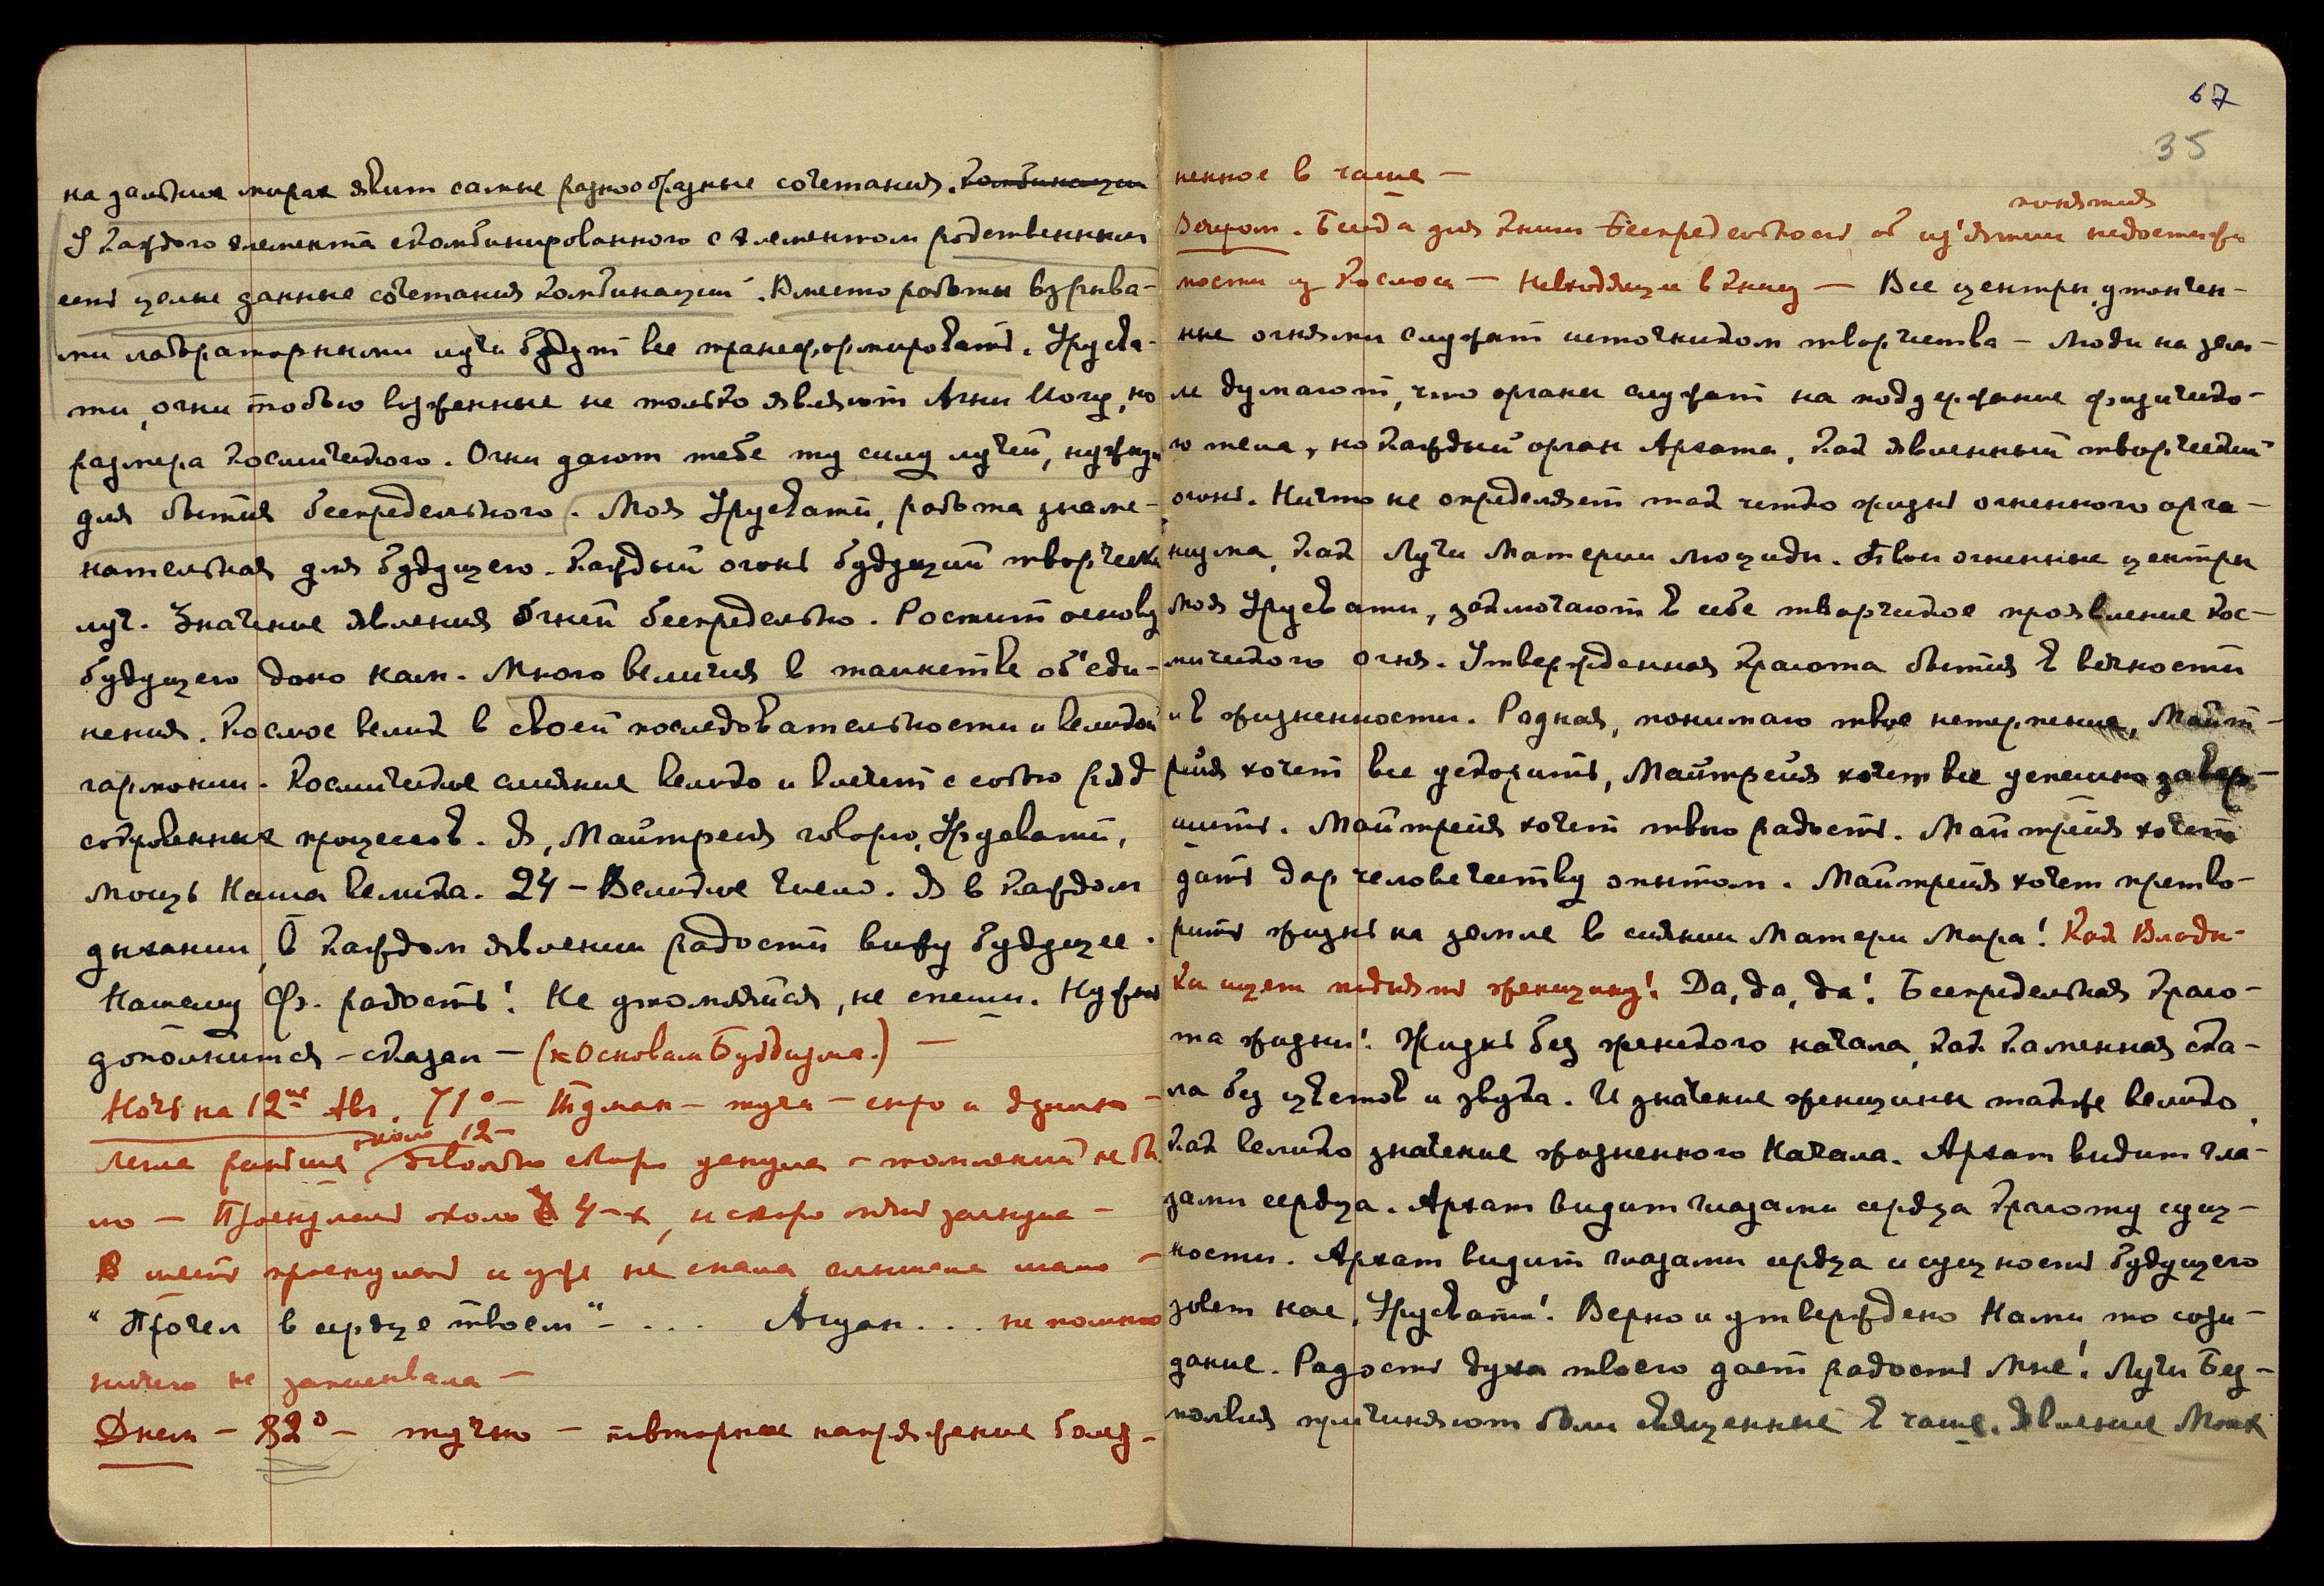 на дальних мирах явит самые разнообразные сочетания. Комбинации
У каждого элемента скомбинированного с элементом родственным
есть целые данные сочетания комбинаций. Вместо работы взрыва-
ми лабораторными лучи будут все трансформировать. Урусва-
ти, огни тобою возженные не только являют Агни Йогу, но
размера космического. Огни дают тебе ту силу лучей, нужную
для бытия беспредельного. Моя Урусвати, работа знаме-
нательная для будущего. Каждый огонь будущий творческий
луч. Значение явления огней беспредельно. Ростит основу
будущего дано нам. Много величия в таинстве об'еди-
нения. Космос велик в своей последовательности и великой
гармонии. Космическое слияние велико и влечет с собою ряд
сокровенных процессов. Я, Майтрейя говорю, Урусвати,
мощь Наша велика. 24 – Великое число. Я в каждом
дыхании, в каждом явлении радости вижу будущее.
Нашему Ф. радость! Не утомляйся, не спеши. Нужно
дополнится – сказал – (к Основам Буддизма.) –
Ночь на 12ое Авг. 71° – Туман – тучи – сыро и душно –
около 12–
Легла раньше сколько скоро уснула – томлений не бы
ло – Проснулась около 4-х, и скоро опять заснула –
В шесть проснулась и уже не спала, слышала мало –
"Прочел в сердце твоем" – ... Агуан ... не помню
ничего не записывала –
Днем – 82° – тучно – повторное напряжение болез-
67
35
ненное в чаше –
понятия
Вечером. Беседа для книги Беспредельность об из'ятии недостижи
мости из Космоса – Невходящее в книгу – Все центры, утончен-
ные огнями служат источником творчества – Люди на зем-
ле думают, что органы служат на поддержание физическо-
го тела, но каждый орган Архата, как явленный творческий
огонь. Ничто не определяет так четко жизнь огненного орга-
низма, как Лучи Материи Люциды. Твои огненные центры
Моя Урусвати, заключают в себе творческое проявление кос-
мического огня. Утвержденная красота бытия в вечности
и в жизненности. Родная, понимаю твое нетерпение, Майт-
рейя хочет все ускорить, Майтрейя хочет все успешно завер-
шить. Майтрейя хочет твою радость. Майтрейя хочет
дать дар человечеству опытом. Майтрейя хочет претво-
рить жизнь на земле в сиянии Матери Мира! Как Влады-
ка ищет поднять женщину! Да, да, да! Беспредельная красо-
та жизни! Жизнь без женского начала, как каменная ска-
ла без цветов и звука. И значение женщины также велико
как велико значение жизненного Начала. Архат видит гла-
зами сердца. Архат видит глазами сердца красоту сущ-
ности. Архат видит глазами сердца и сущность будущего
зовет нас, Урусвати! Верно и утверждено Нами то сози-
дание. Радость духа твоего дает радость Мне! Лучи Без-
молвия причиняют боли священные в чаше. Явление Моих